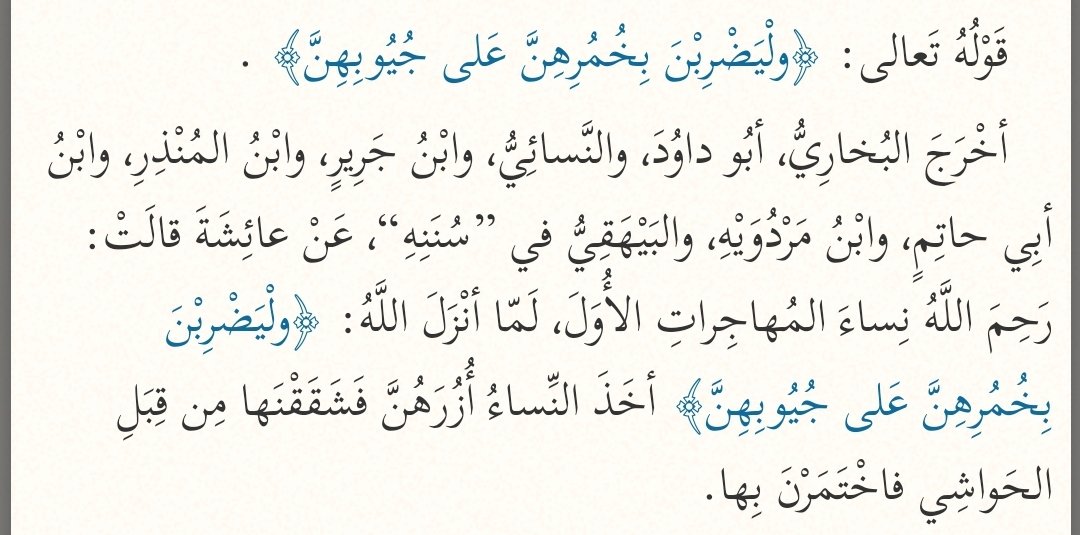 قَوْلُهُ تَعالى: ﴿ولْيَضْرِبْنَ بِخُمُرِهِنَّ عَلى جُيُوبِهِنَّ﴾ .
أخْرَجَ البُخارِيُّ، أبُو داوُدَ، والنَّسائِيُّ، وابْنُ جَرِيرٍ، وابْنُ المُنْذِرِ، وابْنُ
أبِي حاتِمٍ، وابْنُ مَرْدُوَيْهِ، والبَيْهَقِيُّ في ”سُنَنِهِ“، عَنْ عائِشَةَ قالَتْ:
رَحِمَ اللَّهُ نِساءَ المُهاجِراتِ الأُوَلَ، لَمّا أنْزَلَ اللَّهُ: ﴿ولْيَضْرِبْنَ
بِخُمُرِهِنَّ عَلى جُيُوبِهِنَّ﴾ أخَذَ النِّساءُ أُزُرَهُنَّ فَشَقَقْنَها مِن قِبَلِ
الحَواشِي فاخْتَمَرْنَ بِها.